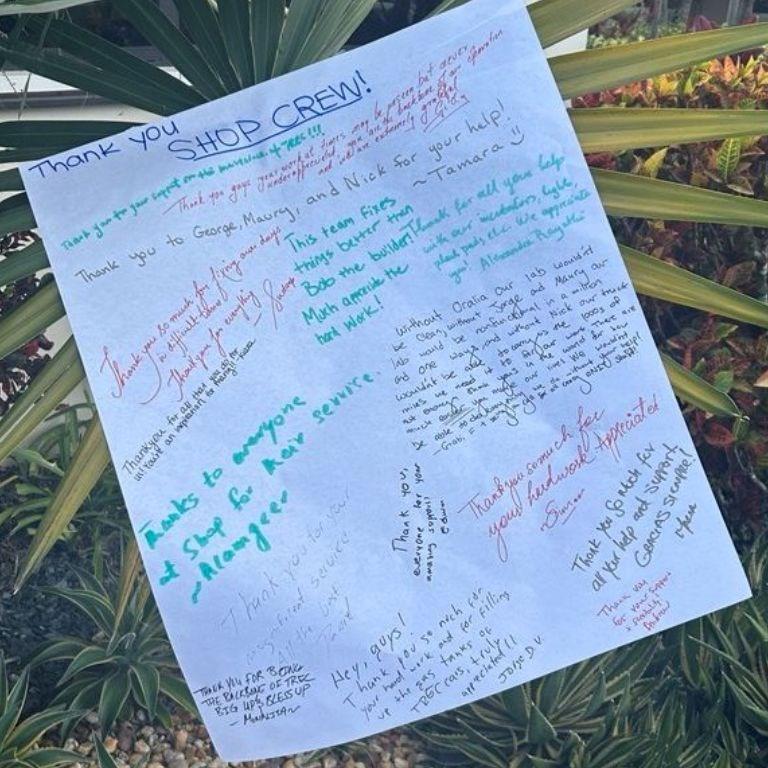 Thank you SHOP CREW!
Thank you for your support on the maintenance of TREC!!!
Thank you guys your work at times may be person but never
underappreciated, you are the backbone of our operation
and we are extremely grateful
Thank you to George, Maury, and Nick for your help!
~Tamara
Thank you so much for fixing our days
in difficult times!
Thank you for everything
This team fixes
things better than
Bob the builder!
Much appreciate the
hard work!
Thank for all your help
with our incubators, light,
plant pads, etc. We appreciate
you! Alexandra
Thankyou for all that you do
without Oralia our lab wouldn't
be clean, without Jorge and Maury our
lab would be nonfunctional in a million
and one ways, and without Nick our truck
wouldn't be able to carry us the 1000s of
miles we need it to for our work. There are
not enough thank yous in the world for how
much easier you make our lives. We wouldn't
be able to do anything we do without your help!
Thanks to everyone
at Shop for their service.
~Alamgeer
Thank you,
everyone for your
amazing support!
Edwin
Thank you so much for
your hardwork Appreciated
Thank you so much for
all your help and support
GRACIAS SIEMPRE!
Thank you for your
magnificent service
all the time
Thank you
for your support
Hey, guys!
Thank you so much for
your hard work and for filling
up the gas tanks of
TREC cars, truly
appreciated!!
Jorge D.V.
THANK YOU FOR BEING
THE BACKBONE OF TREC
BIG UPS, BLESS UP